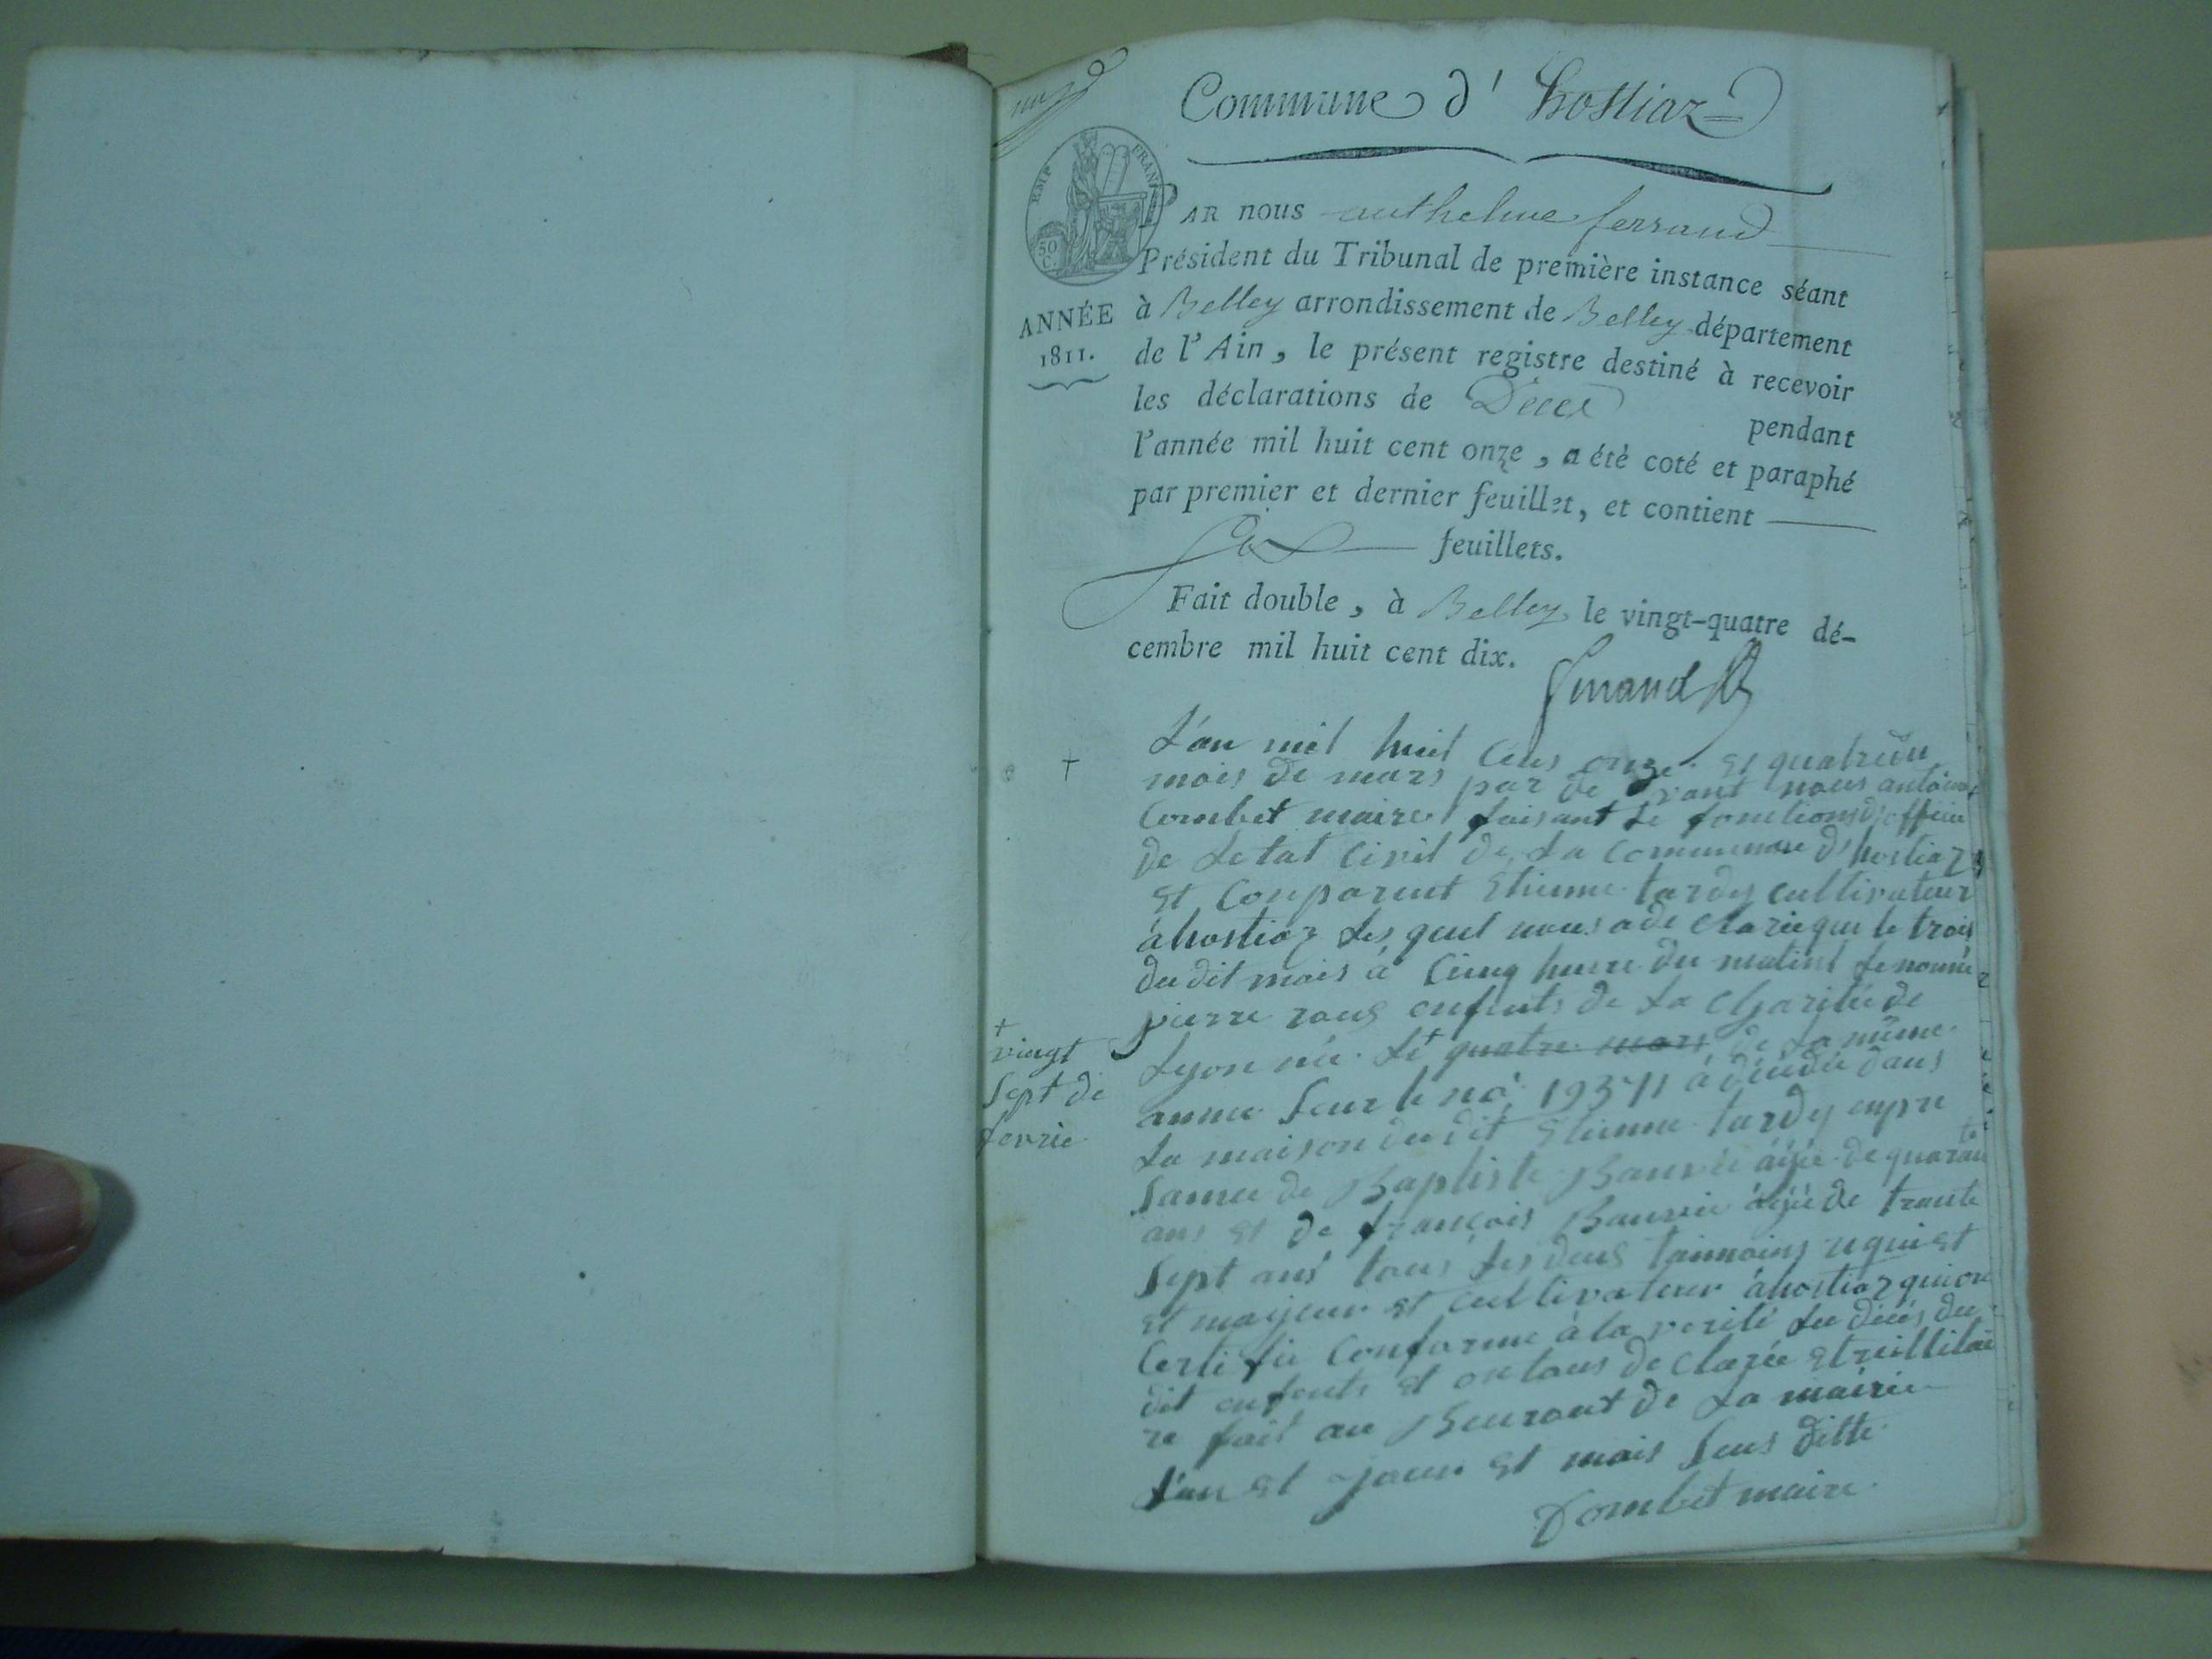 Commune d'hostiaz
EMP FRAN
50
C.
ANNÉE
1811.
PAR nous anthelme ferrand
Président du Tribunal de première instance séant
à Belley arrondissement de Belley département
de l'Ain, le présent registre destiné à recevoir
les déclarations de Décès pendant
l'année mil huit cent onze, a été coté et paraphé
par premier et dernier feuillet, et contient
Six feuillets.
Fait double, à Belley, le vingt-quatre dé-
cembre mil huit cent dix.
L'an mil huit Cens onze et quatre du
mois de mars par de vant nous antoine
Combet maire faisant le fonctions d'officie
de Letat Civil de La Commune d'hostiaz
et Conparent Etienne tardy cultivateur
à hostiaz Les quel nous a de clarie que le trois
du dit mois à Cinq heure du matint le nomme
pierre roug enfents de La Charitée de
Lyon née Le quatre mars de La même
+
vingt
sept de
fevrie
anne seur le no 193 à décédée dans
La maison du dit Etienne tardy enpre
sance de Baptiste Bauvie agée de quarante
ans et de françois Bauvie agée de trante
sept ans tous Les deus taimoins requi et
et majeur et cultivateur à hostiaz qui on
Certi fie Conforme à la verité du décès du
dit enfents et on tous de clarée
re fait au Beuraut de La mairie
L'an et jour et mois sus ditte
Combet maire